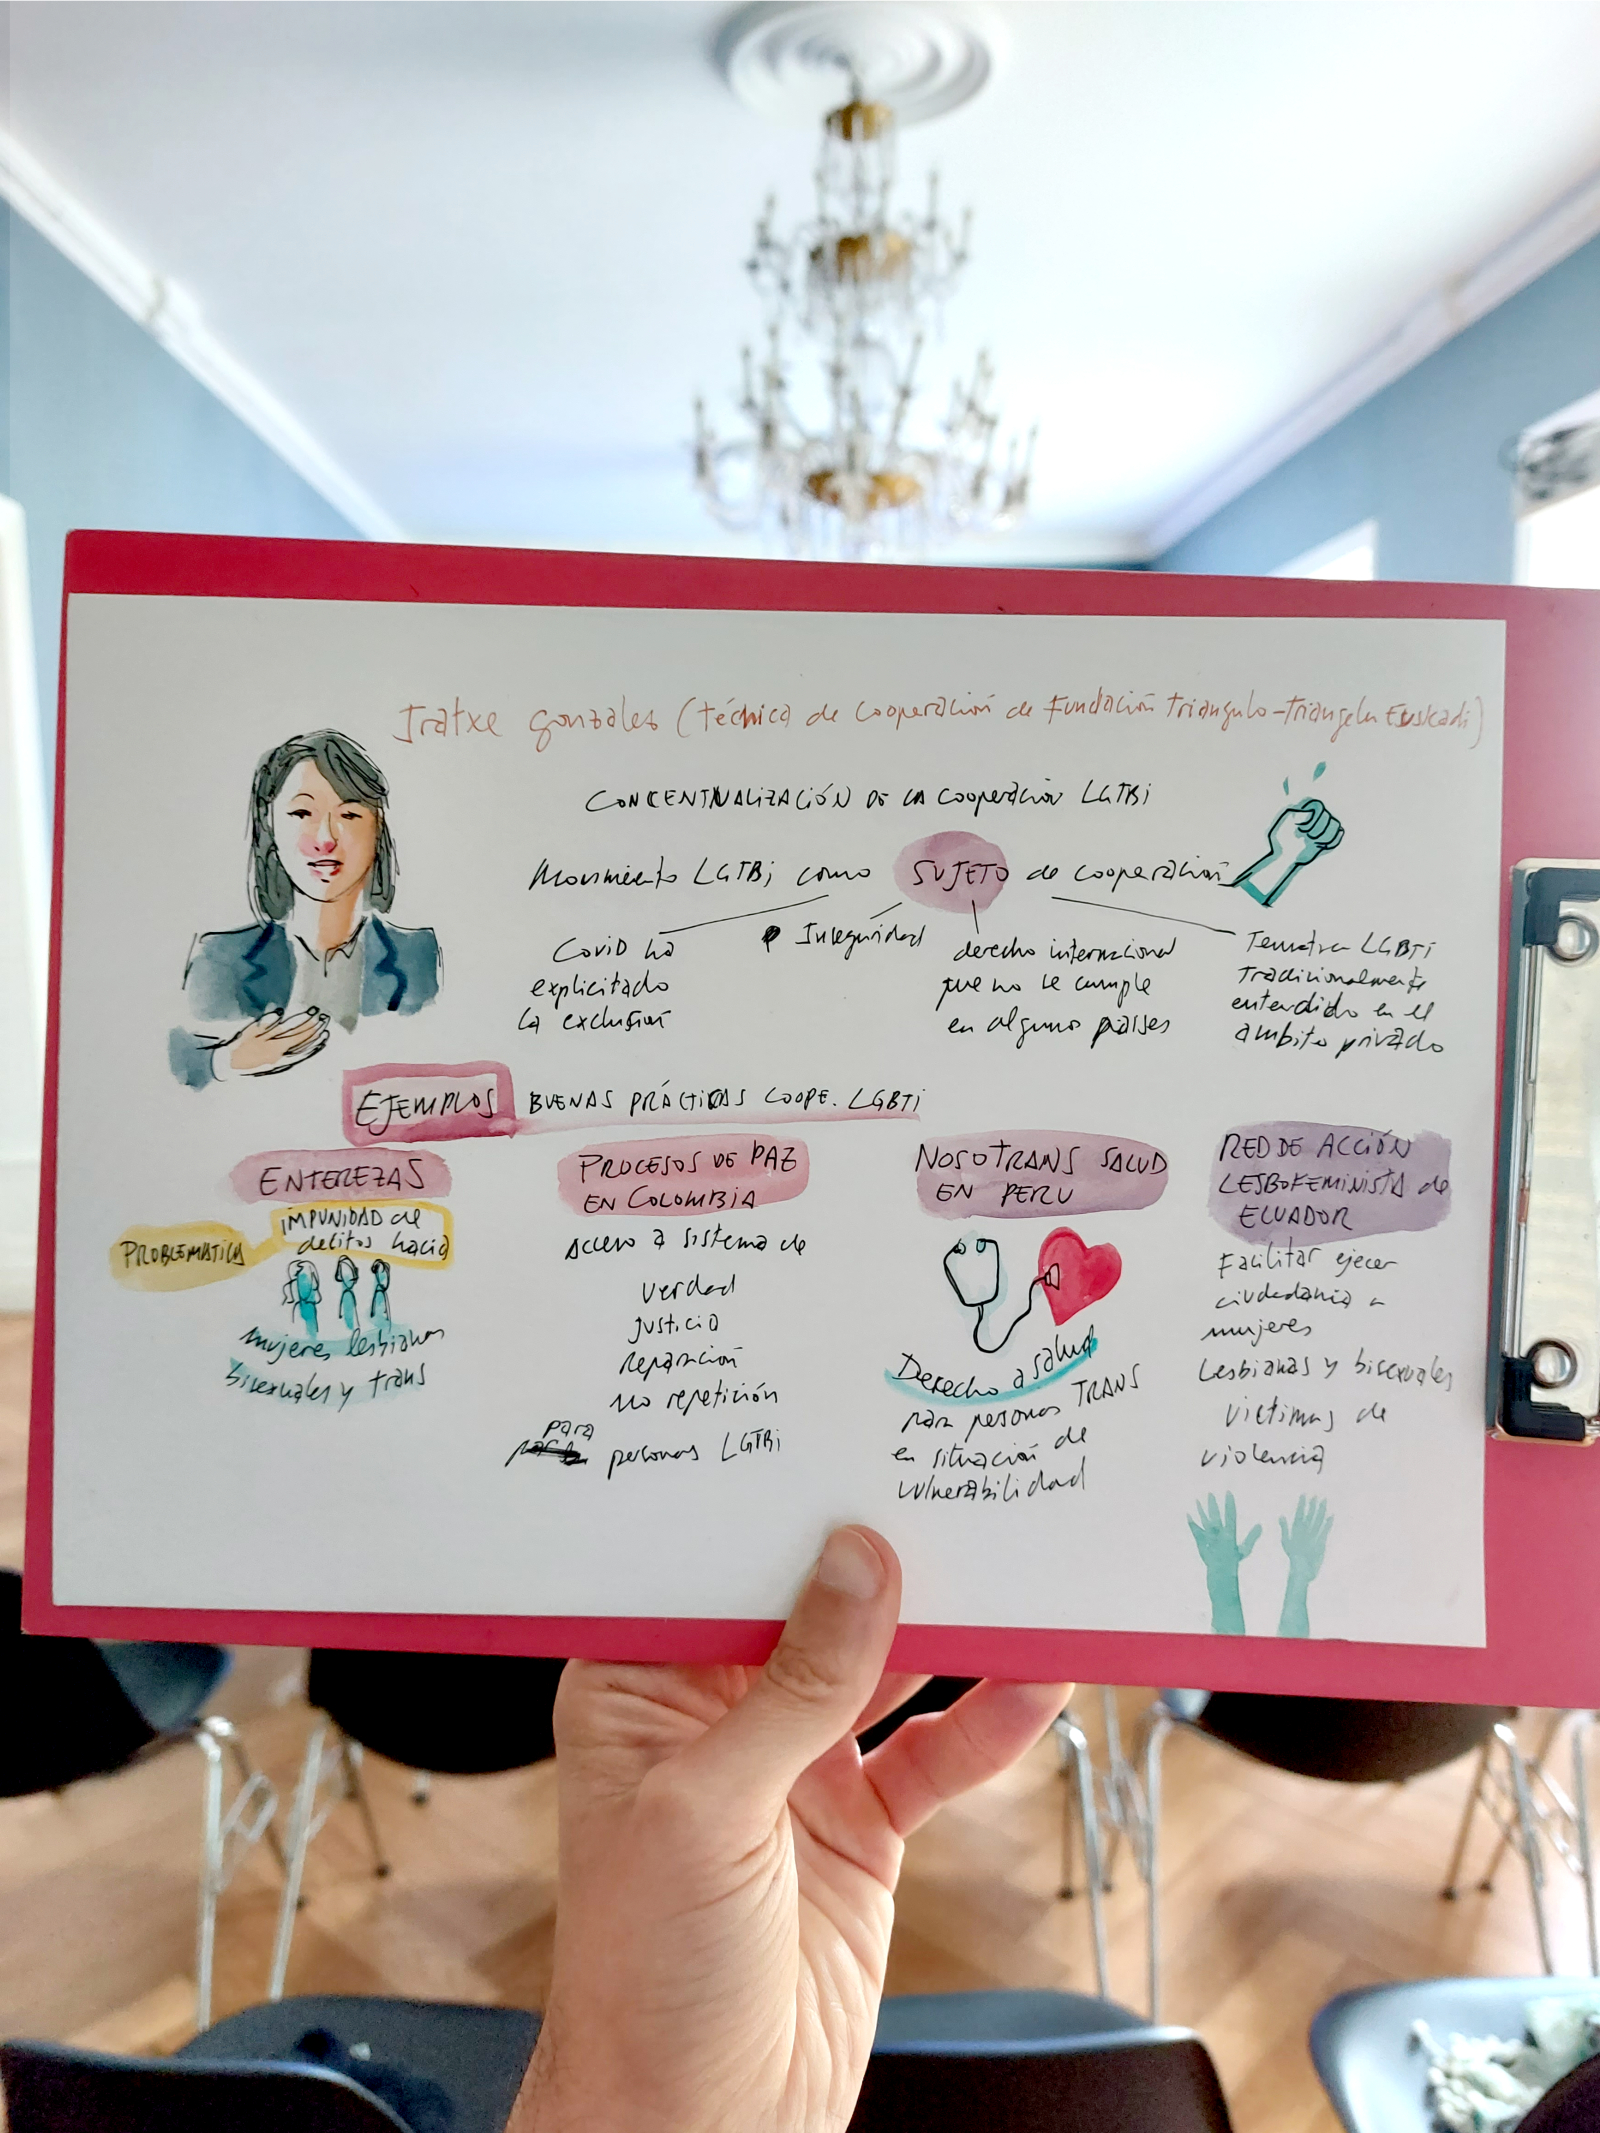 Iratxe gonzales (técnica de cooperación de Fundación Triangulo-Triangelu Euskadi)
CONCENTNALIZACIÓN DE LA COOPERACIÓN LGTBi
Movimiento LGTBi como SUJETO de cooperación
Covid ha
explicitado
la exclusión
Inseguridad
derecho internacional
que no se cumple
en alguno países
Temática LGBTi
Tradicionalmente
entendido en el
ambito privado
EJEMPLOS BUENAS PRÁCTICAS COOPE. LGBTi
ENTEREZAS
PROBLEMÁTICA
IMPUNIDAD de
delitos hacia
mujeres lesbianas
bisexuales y trans
PROCESOS DE PAZ
EN COLOMBIA
acceso a sistema de
verdad
justicia
reparación
no repetición
para
personas LGTBi
NOSOTRANS SALUD
EN PERU
Derecho a salud
para personas TRANS
en situación de
vulnerabilidad
RED DE ACCIÓN
LESBOFEMINISTA de
ECUADOR
Facilitar ejecer
ciudadania a
mujeres
Lesbianas y bisexuales
victimas de
violencia